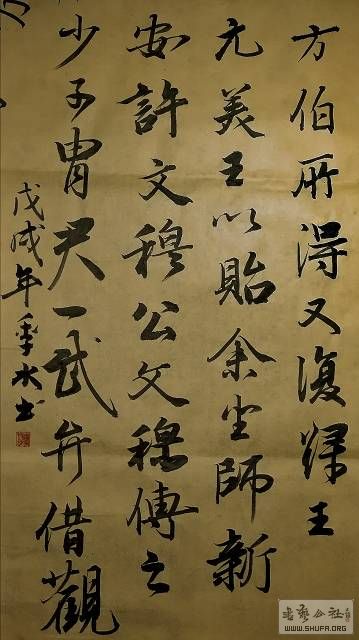 方伯所得又復歸王
元美王以貽余坐師新
安許文穆公文穆傳之
少子胄君一武弁借觀
戊戌年季水书
書藝公社
WWW.SHUFA.ORG